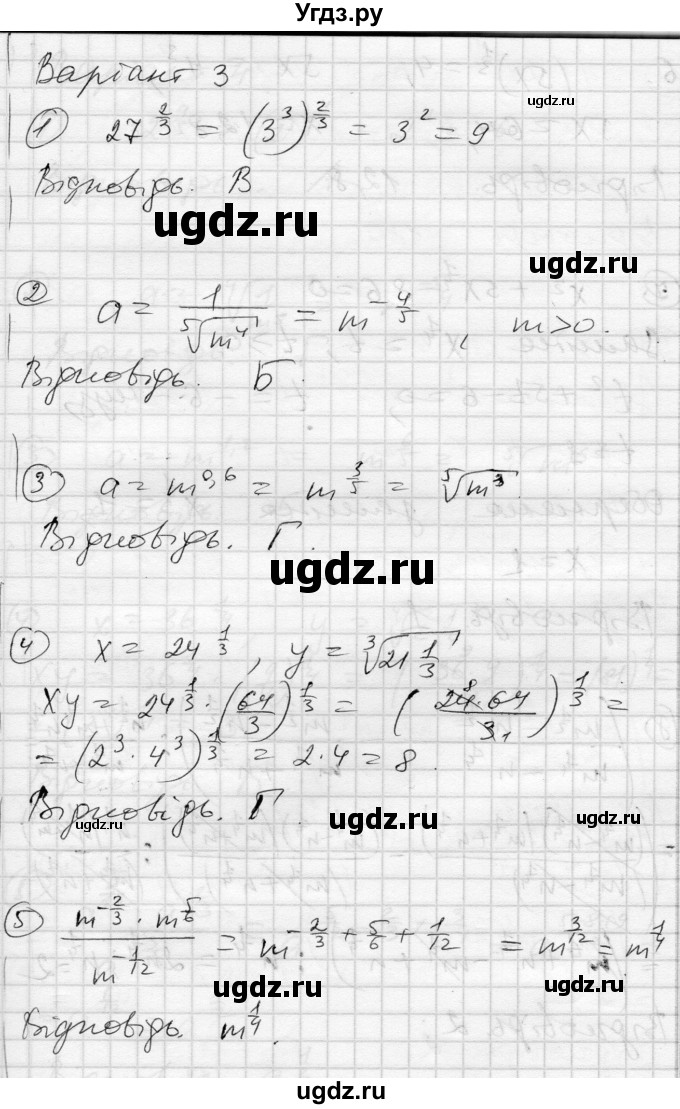 Угдз.ру
Варіант 3
ugdz.ru
① 27^(2/3) = (3^3)^(2/3) = 3^2 = 9
Відповідь. В
ugdz.ru
ugdz.ru
② a = 1/⁵√(m^4) = m^(-4/5), m>0.
Відповідь. Б.
ugdz.ru
③ a = m^0,6 = m^(3/5) = ⁵√(m^3).
Відповідь. Г.
ugdz.ru
④ x = 24^(1/3), y = ³√(21 1/3)
xy = 24^(1/3) · (64/3)^(1/3) = (24 8 · 64 / 3 1)^(1/3) =
= (2^3 · 4^3)^(1/3) = 2·4 = 8.
Відповідь. Г.
ugdz.ru
ugdz.ru
ugdz.ru
⑤ (m^(-2/3) · m^(5/6)) / m^(-1/12) = m^(-2/3 + 5/6 + 1/12) = m^(3/12) = m^(1/4)
ugdz.ru
ugdz.ru
Відповідь. m^(1/4).
ugdz.ru